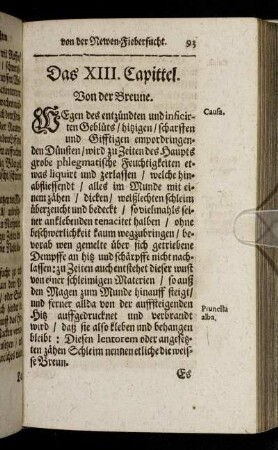 von der Newen-Fiebersucht. 93
Das XIII. Capittel.
Von der Breune.
WEgen des entzündten und inficir-
ten Geblüts / hizigen / scharffen
und Gifftigen empordringen-
den Dünsten / wird zu Zeiten des Haupts
grobe phlegmatische Feuchtigkeiten et-
was liquirt und zerlassen / welche hin-
abfliessendt / alles im Munde mit ei-
nem zähen / dicken / weißlechten schleim
überzeucht und bedeckt / so vielmahls sei-
ner anklebenden tenacitet halben / ohne
beschwerlichkeit kaum wegzubringen / be-
vorab wen gemelte über sich getriebene
Dempffe an hitz und schärpffe nicht nach-
lassen: zu Zeiten auch entstehet dieser wust
von einer schleimigen Materien / so auß
den Magen zum Munde hinauff steigt /
und ferner allda von der auffsteigenden
Hitz auffgedrucknet und verbrandt
wird / daß sie also kleben und behangen
bleibt : Diesen lentorem oder angesetz-
ten zähen Schleim nennen etliche die weis-
se Breun.
Es
Causa.
Prunella
alba.